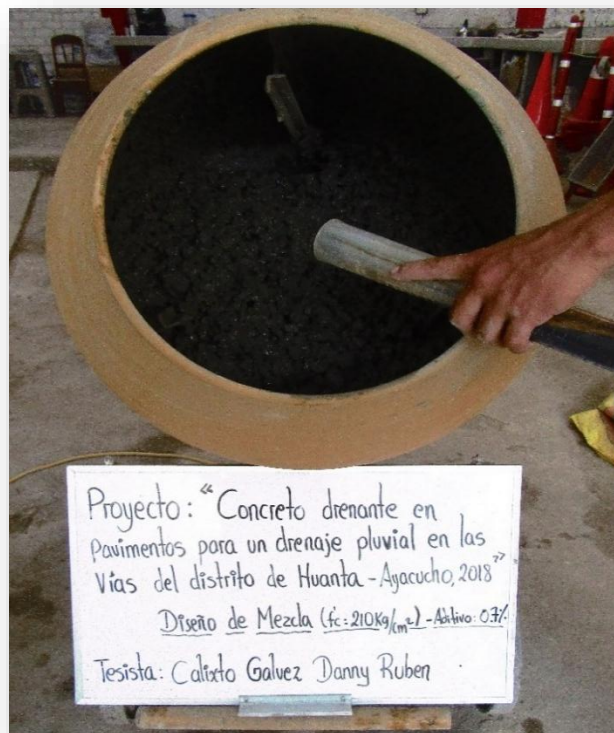 Proyecto: “Concreto drenante en
Pavimentos para un drenaje pluvial en las
Vías del distrito de Huanta - Ayacucho, 2018”
Diseño de Mezcla (f'c: 210Kg/cm²) - Aditivo: 0.7%
Tesista: Calixto Galvez Danny Ruben